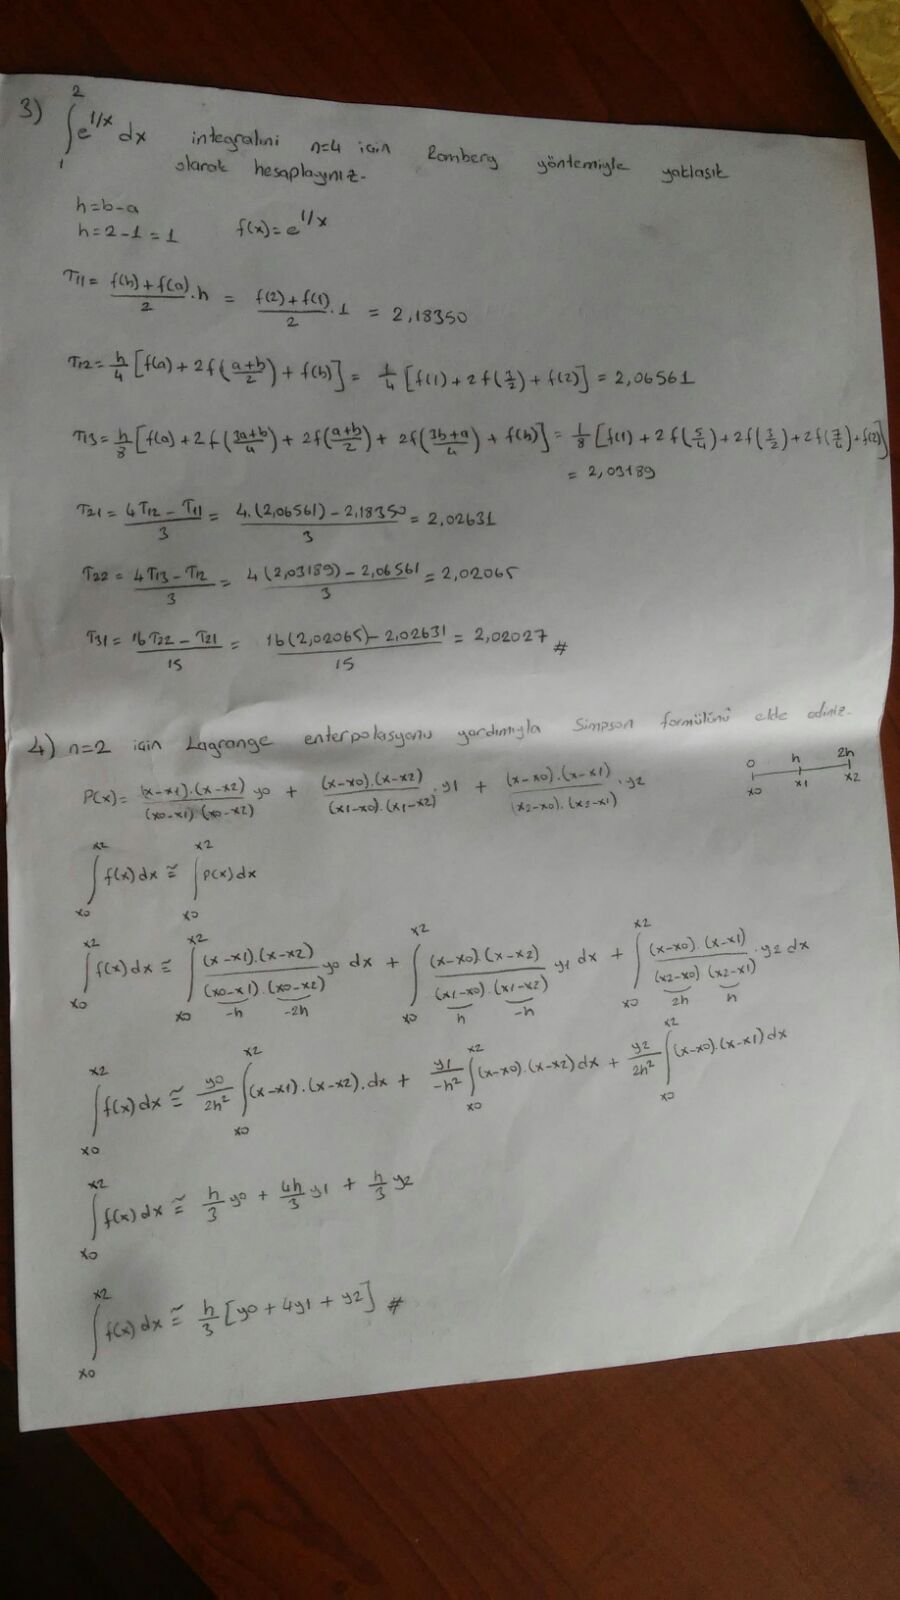 3) ∫₁² e^(1/x) dx integralini n=4 için Romberg yöntemiyle yaklaşık
olarak hesaplayınız.
h=b-a
h=2-1=1 f(x)=e^(1/x)
T11= (f(b)+f(a))/2 · h = (f(2)+f(1))/2 · 1 = 2,18350
T12= h/4 [f(a)+2f((a+b)/2)+f(b)] = 1/4 [f(1)+2f(3/2)+f(2)] = 2,06561
T13= h/8 [f(a)+2f((3a+b)/4)+2f((a+b)/2)+2f((3b+a)/4)+f(b)] = 1/8 [f(1)+2f(5/4)+2f(3/2)+2f(7/4)+f(2)]
= 2,03189
T21= (4T12-T11)/3 = (4.(2,06561)-2,18350)/3 = 2,02631
T22= (4T13-T12)/3 = (4(2,03189)-2,06561)/3 = 2,02065
T31= (16T22-T21)/15 = (16(2,02065)-2,02631)/15 = 2,02027 #
4) n=2 için Lagrange enterpolasyonu yardımıyla Simpson formülünü elde ediniz.
0 h 2h
P(x)= ((x-x1).(x-x2))/((x0-x1)(x0-x2)) y0 + ((x-x0).(x-x2))/((x1-x0).(x1-x2)) · y1 + ((x-x0).(x-x1))/((x2-x0).(x2-x1)) · y2
x0 x1 x2
∫_x0^x2 f(x)dx ≅ ∫_x0^x2 P(x)dx
∫_x0^x2 f(x)dx ≅ ∫_x0^x2 ((x-x1).(x-x2))/((x0-x1).(x0-x2)) y0 dx + ∫_x0^x2 ((x-x0).(x-x2))/((x1-x0).(x1-x2)) y1 dx + ∫_x0^x2 ((x-x0).(x-x1))/((x2-x0)(x2-x1)) · y2 dx
-h -2h h -h 2h h
∫_x0^x2 f(x)dx ≅ y0/2h² ∫_x0^x2 (x-x1).(x-x2).dx + y1/-h² ∫_x0^x2 (x-x0).(x-x2)dx + y2/2h² ∫_x0^x2 (x-x0).(x-x1)dx
∫_x0^x2 f(x)dx ≅ h/3 y0 + 4h/3 y1 + h/3 y2
∫_x0^x2 f(x)dx ≅ h/3 [y0+4y1+y2] #